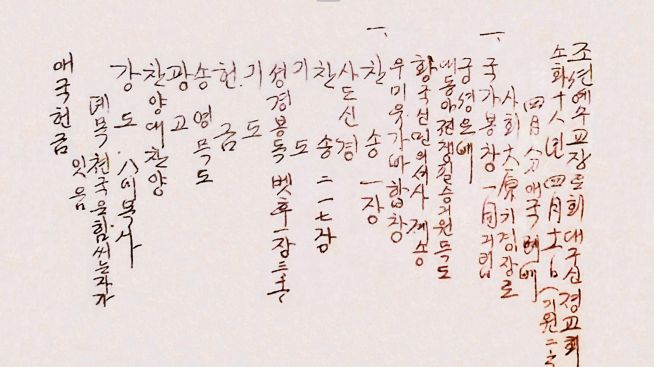 조선예수교장로회대구신정교회
소화十八년四月十一日(기원二
四月分애국례배
사회 大原기정장로
一、국가봉창 一同기립
궁성요배
대동아전쟁필승기원묵도
황국신민의서사 제송
우미유가바 합창
一、찬송 一장
사도신경
찬송 二一七장
기도
성경봉독 벳후一장
기도
헌금
송영묵도
광고
찬양대찬양
강도 목사
뎨목 천국은힘써는자가
잇음
애국헌금